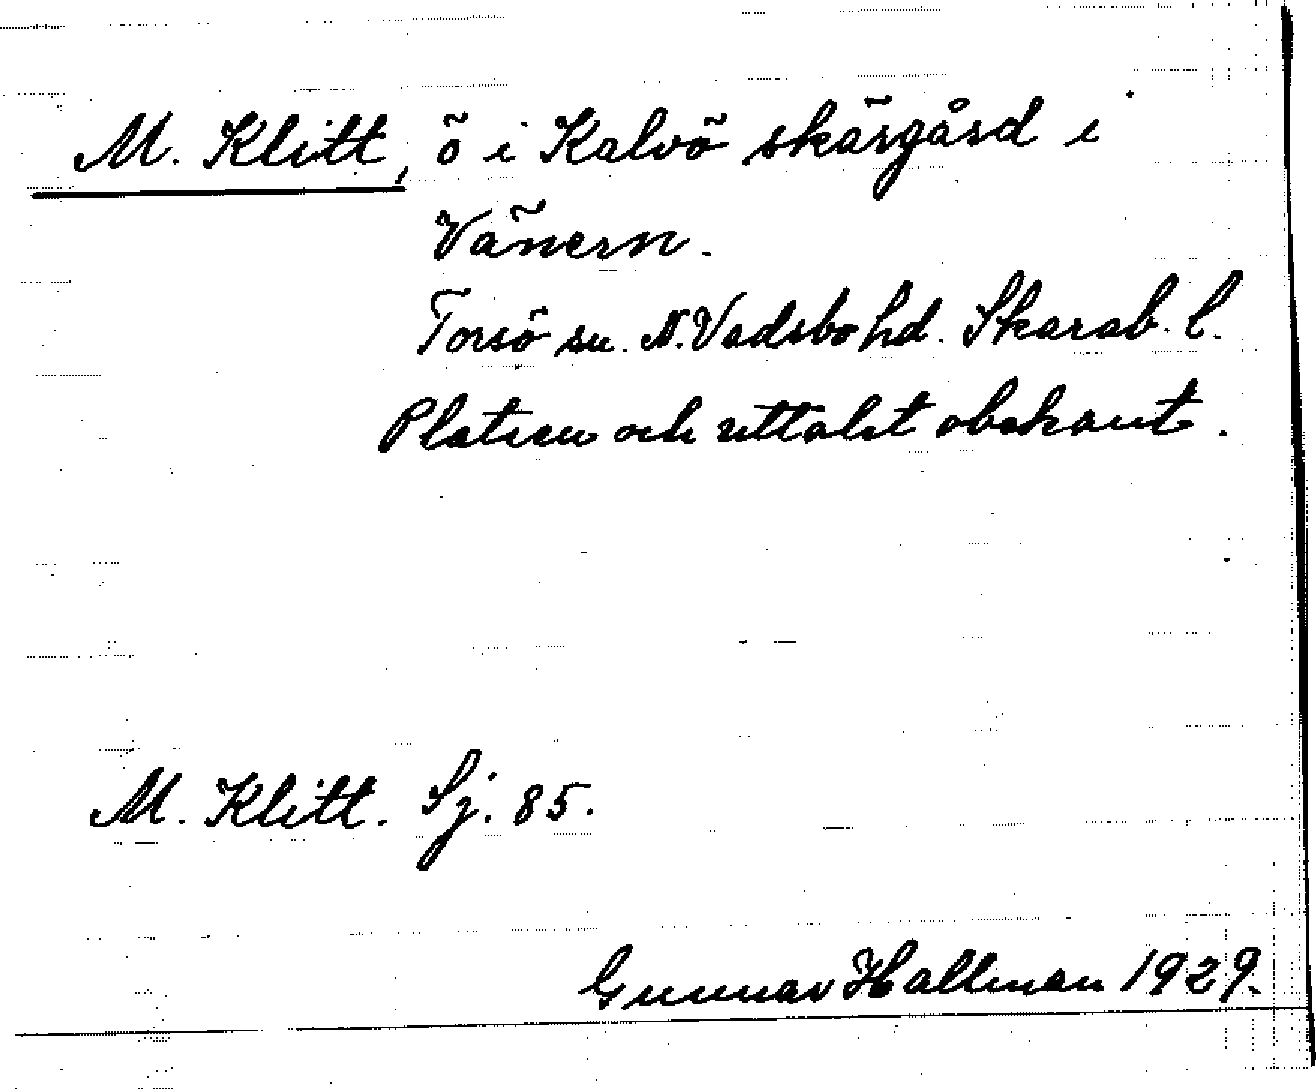 M. Klitt, ö i Kalvö skärgård i
Vänern.
Torsö sn. N. Vadsbo hd. Skarab. l.
Platsen och uttalet obekant.
M. Klitt. Sj. 85.
Gunnar Hallman 1929.